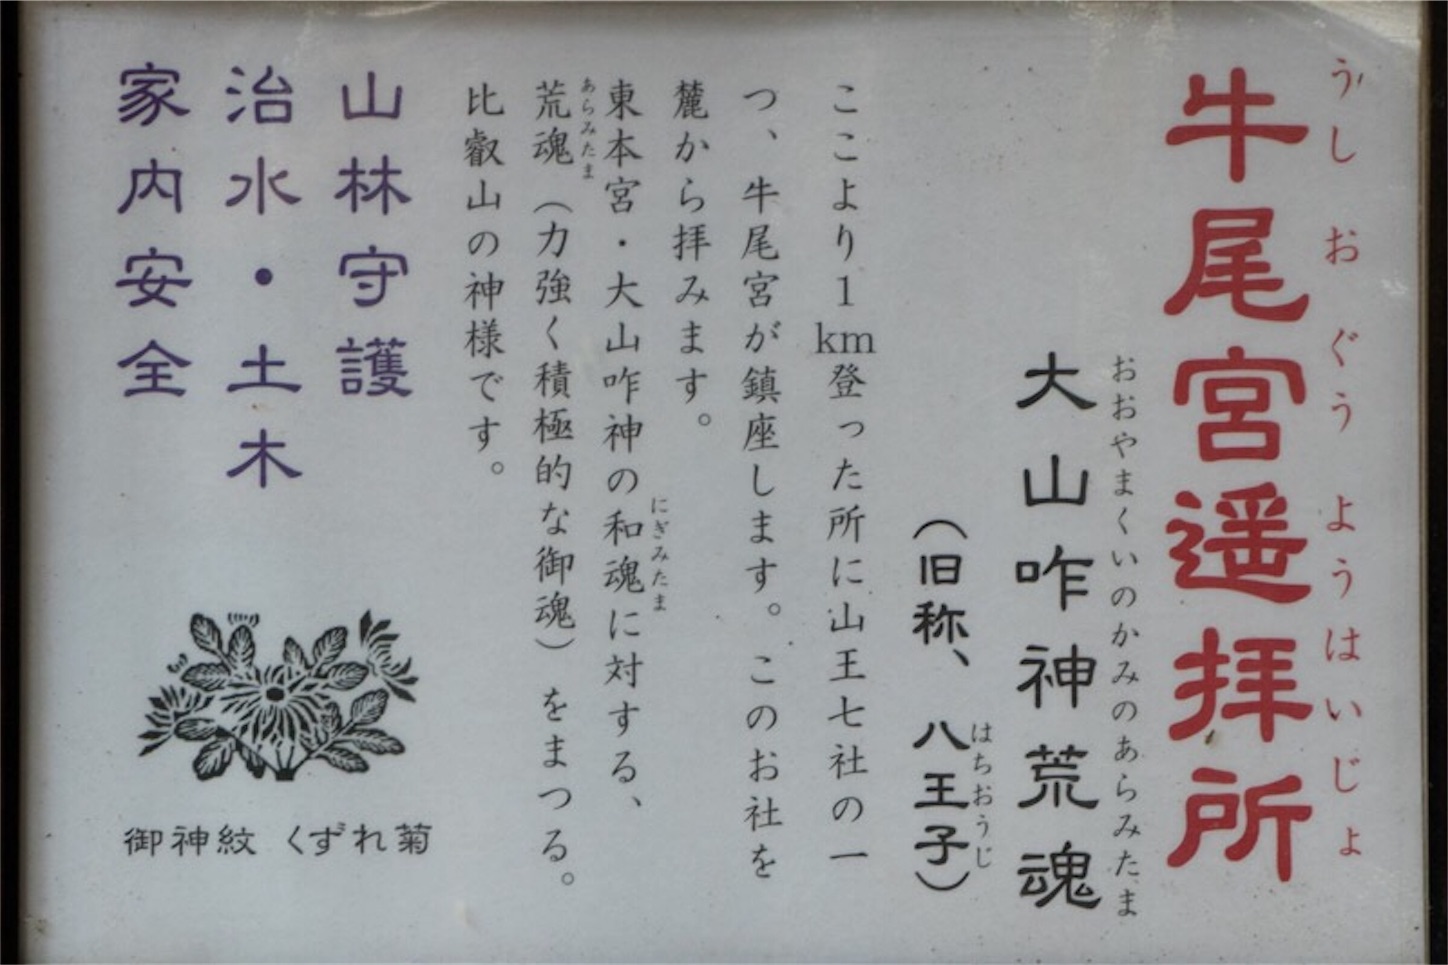 うしおぐうようはいじょ
牛尾宮遥拝所
おおやまくいのかみのあらみたま
大山咋神荒魂
(旧称、八王子)
はちおうじ
ここより1km登った所に山王七社の一
つ、牛尾宮が鎮座します。このお社を
麓から拝みます。
にぎみたま
東本宮・大山咋神の和魂に対する、
あらみたま
荒魂(力強く積極的な御魂)をまつる。
比叡山の神様です。
山林守護
治水・土木
家内安全
御神紋 くずれ菊